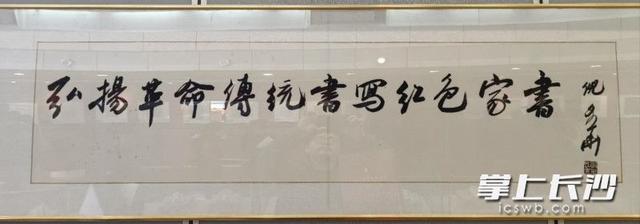 弘揚革命傳统書寫红色家書
掌上长沙
icswb.com